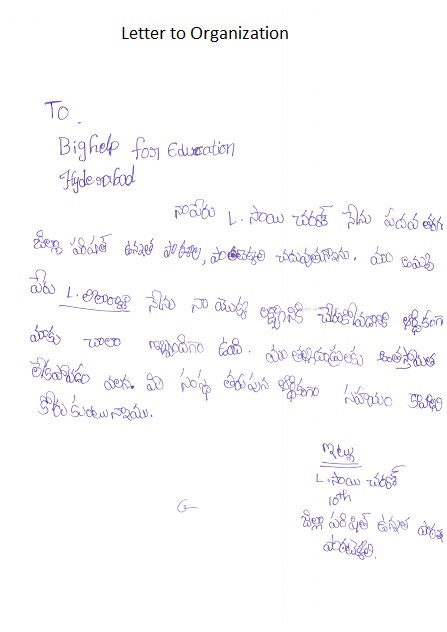 Letter to Organization
To.
Bighelp for Education
Hyderabad
నాపేరు L. సాయి చరణ్ నేను పదవ తరగ
జిల్లా పరిషత్ ఉన్నత పాఠశాల, చదువుతున్నాను. మా అమ్మ
పేరు నేను నా యొక్క లక్ష్యానికి చేరుకోవడానికి ఆర్థికంగా
మాకు చాలా ఇబ్బందిగా ఉంది. మా తల్లిదండ్రులకు
లేకపోవడం వలన. మీ సంస్థ తరుపున ఆర్థికంగా సహాయం
కోరుకుంటున్నాను.
ఇట్లు
L. సాయి చరణ్
10th
జిల్లా పరిషత్ ఉన్నత